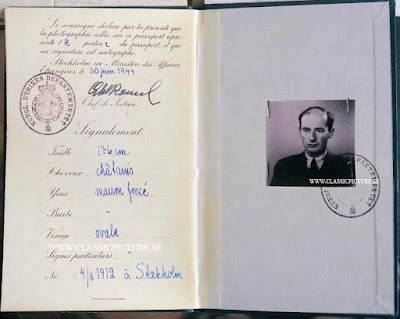 Le soussigné déclare par la présente que
la photographie collée sur ce passeport repré-
sente le porteur du passeport, et que
sa signature est autographe.
Stockholm au Ministère des Affaires
Etrangères le 30 juin 1944
Chef de Section.
KUNGL. UTRIKES DEPARTEMENTET
Signalement.
Taille 176 cm.
Cheveux châtains
Yeux marron foncé
Barbe -
Visage ovale
Signes particuliers -
Né 4/8 1912 à Stockholm
WWW.CLASSICPICTURE.SE
WWW.CLASSICPICTURE.SE